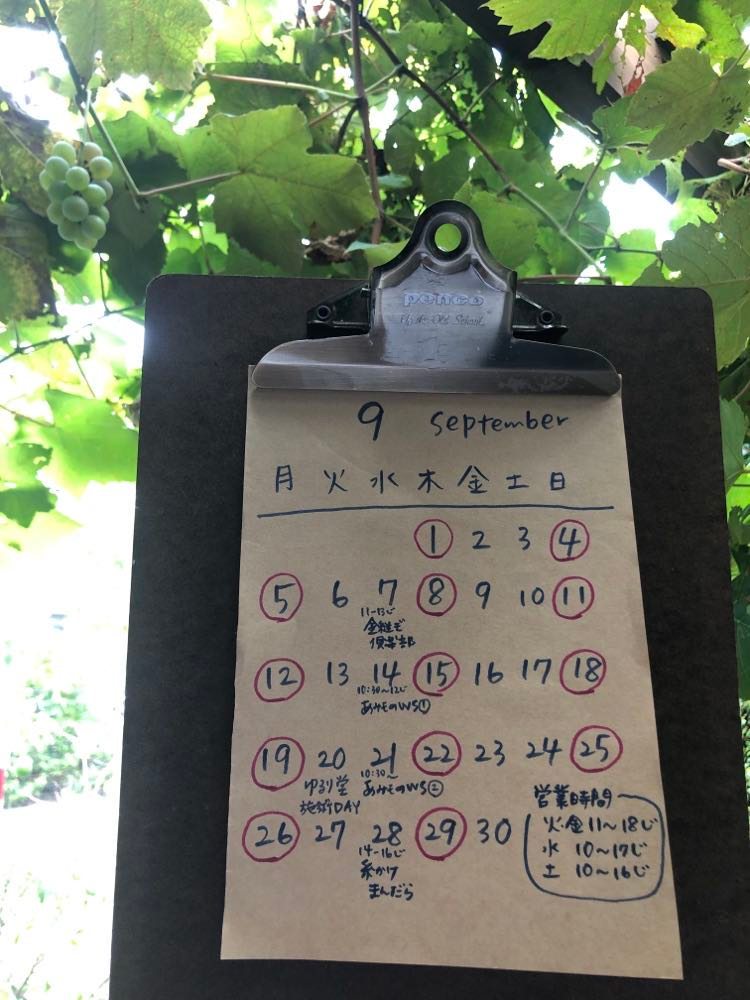 penco
Old School
9 September
月 火 水 木 金 土 日
1 2 3 4
5 6 7 8 9 10 11
11-13じ
金継ぎ
倶楽部
12 13 14 15 16 17 18
10:30~12じ
あみものWS①
19 20 21 22 23 24 25
ゆるり堂
施術DAY
10:30~
あみものWS②
26 27 28 29 30
14-16じ
糸かけ
まんだら
営業時間
火・金 11~18じ
水 10~17じ
土 10~16じ